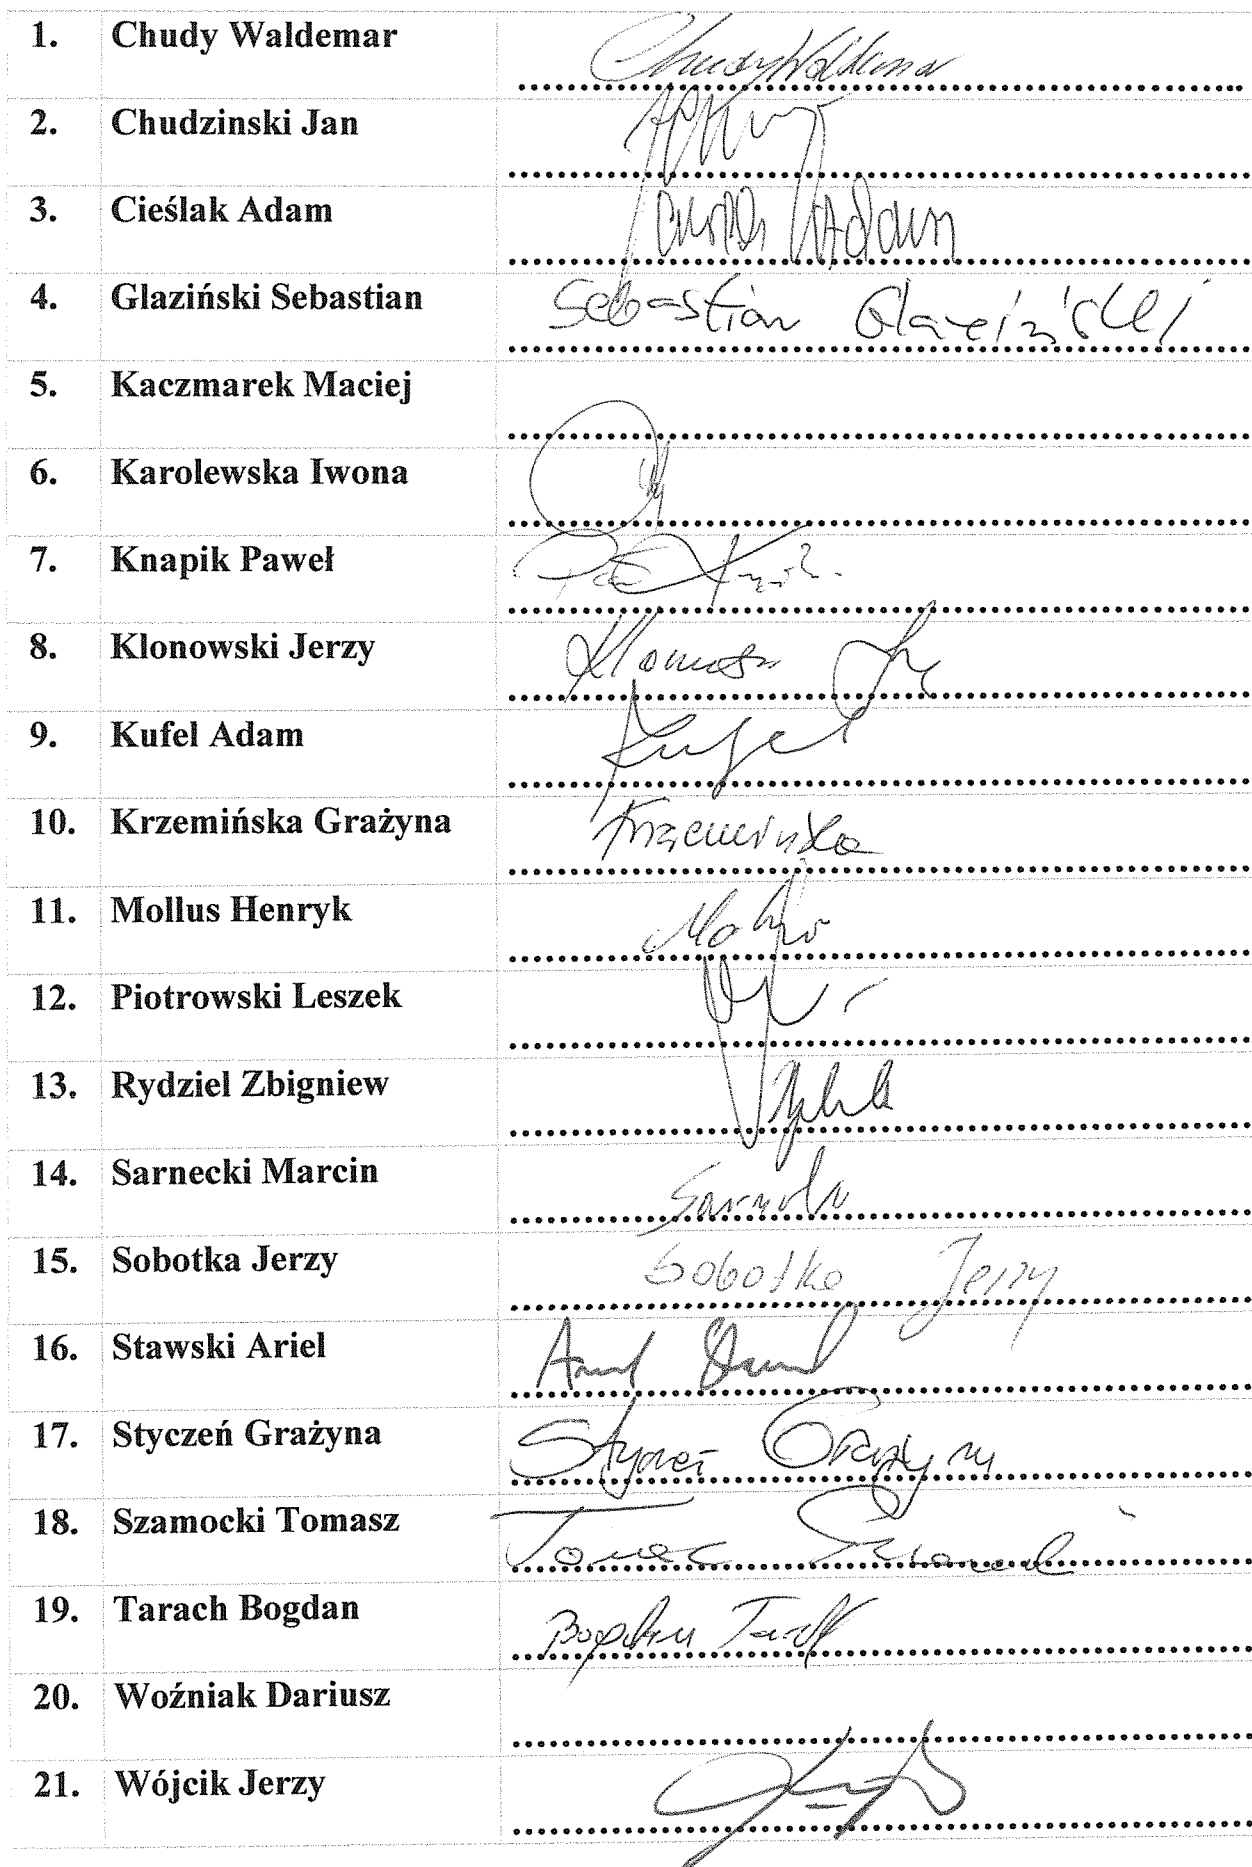 1. Chudy Waldemar Chudy Waldemar
2. Chudzinski Jan
3. Cieślak Adam Adam
4. Glaziński Sebastian Sebastian Glaziński
5. Kaczmarek Maciej
6. Karolewska Iwona
7. Knapik Paweł
8. Klonowski Jerzy
9. Kufel Adam Kufel
10. Krzemińska Grażyna Krzemińska
11. Mollus Henryk
12. Piotrowski Leszek
13. Rydziel Zbigniew
14. Sarnecki Marcin
15. Sobotka Jerzy Sobotka Jerzy
16. Stawski Ariel
17. Styczeń Grażyna Styczeń Grażyna
18. Szamocki Tomasz
19. Tarach Bogdan Bogdan
20. Woźniak Dariusz
21. Wójcik Jerzy